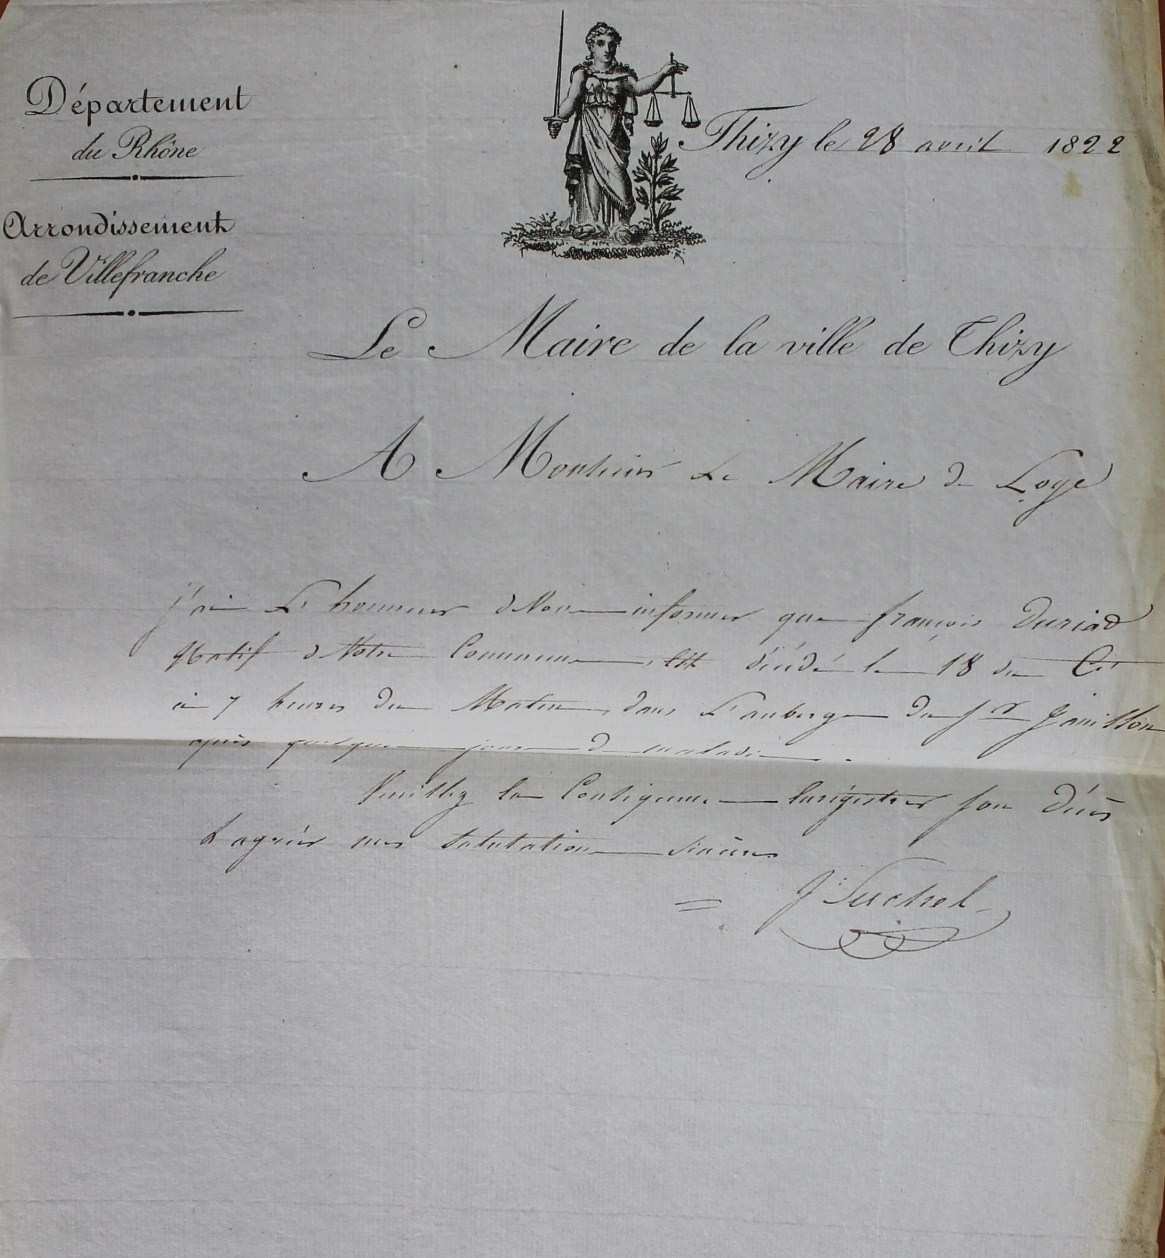 Département
du Rhône
Arrondissement
de Villefranche
Thizy le 28 avril 1822
Le Maire de la ville de Thizy
A Monsieur Le Maire de
J'ai L'honneur d Vous informer que françois Duriad
Natif d Votre Commune Est décédé le 18 du Ct
à 7 heures du Matin dans L'auberge du sr
après quelque jours de maladie.
Veuillez En Conséquence Enrégistrer son décès
& agréer mes Salutations sincères
J Suchel